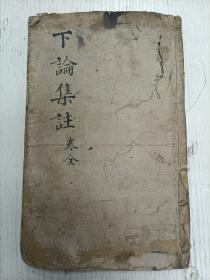 下論集註卷全